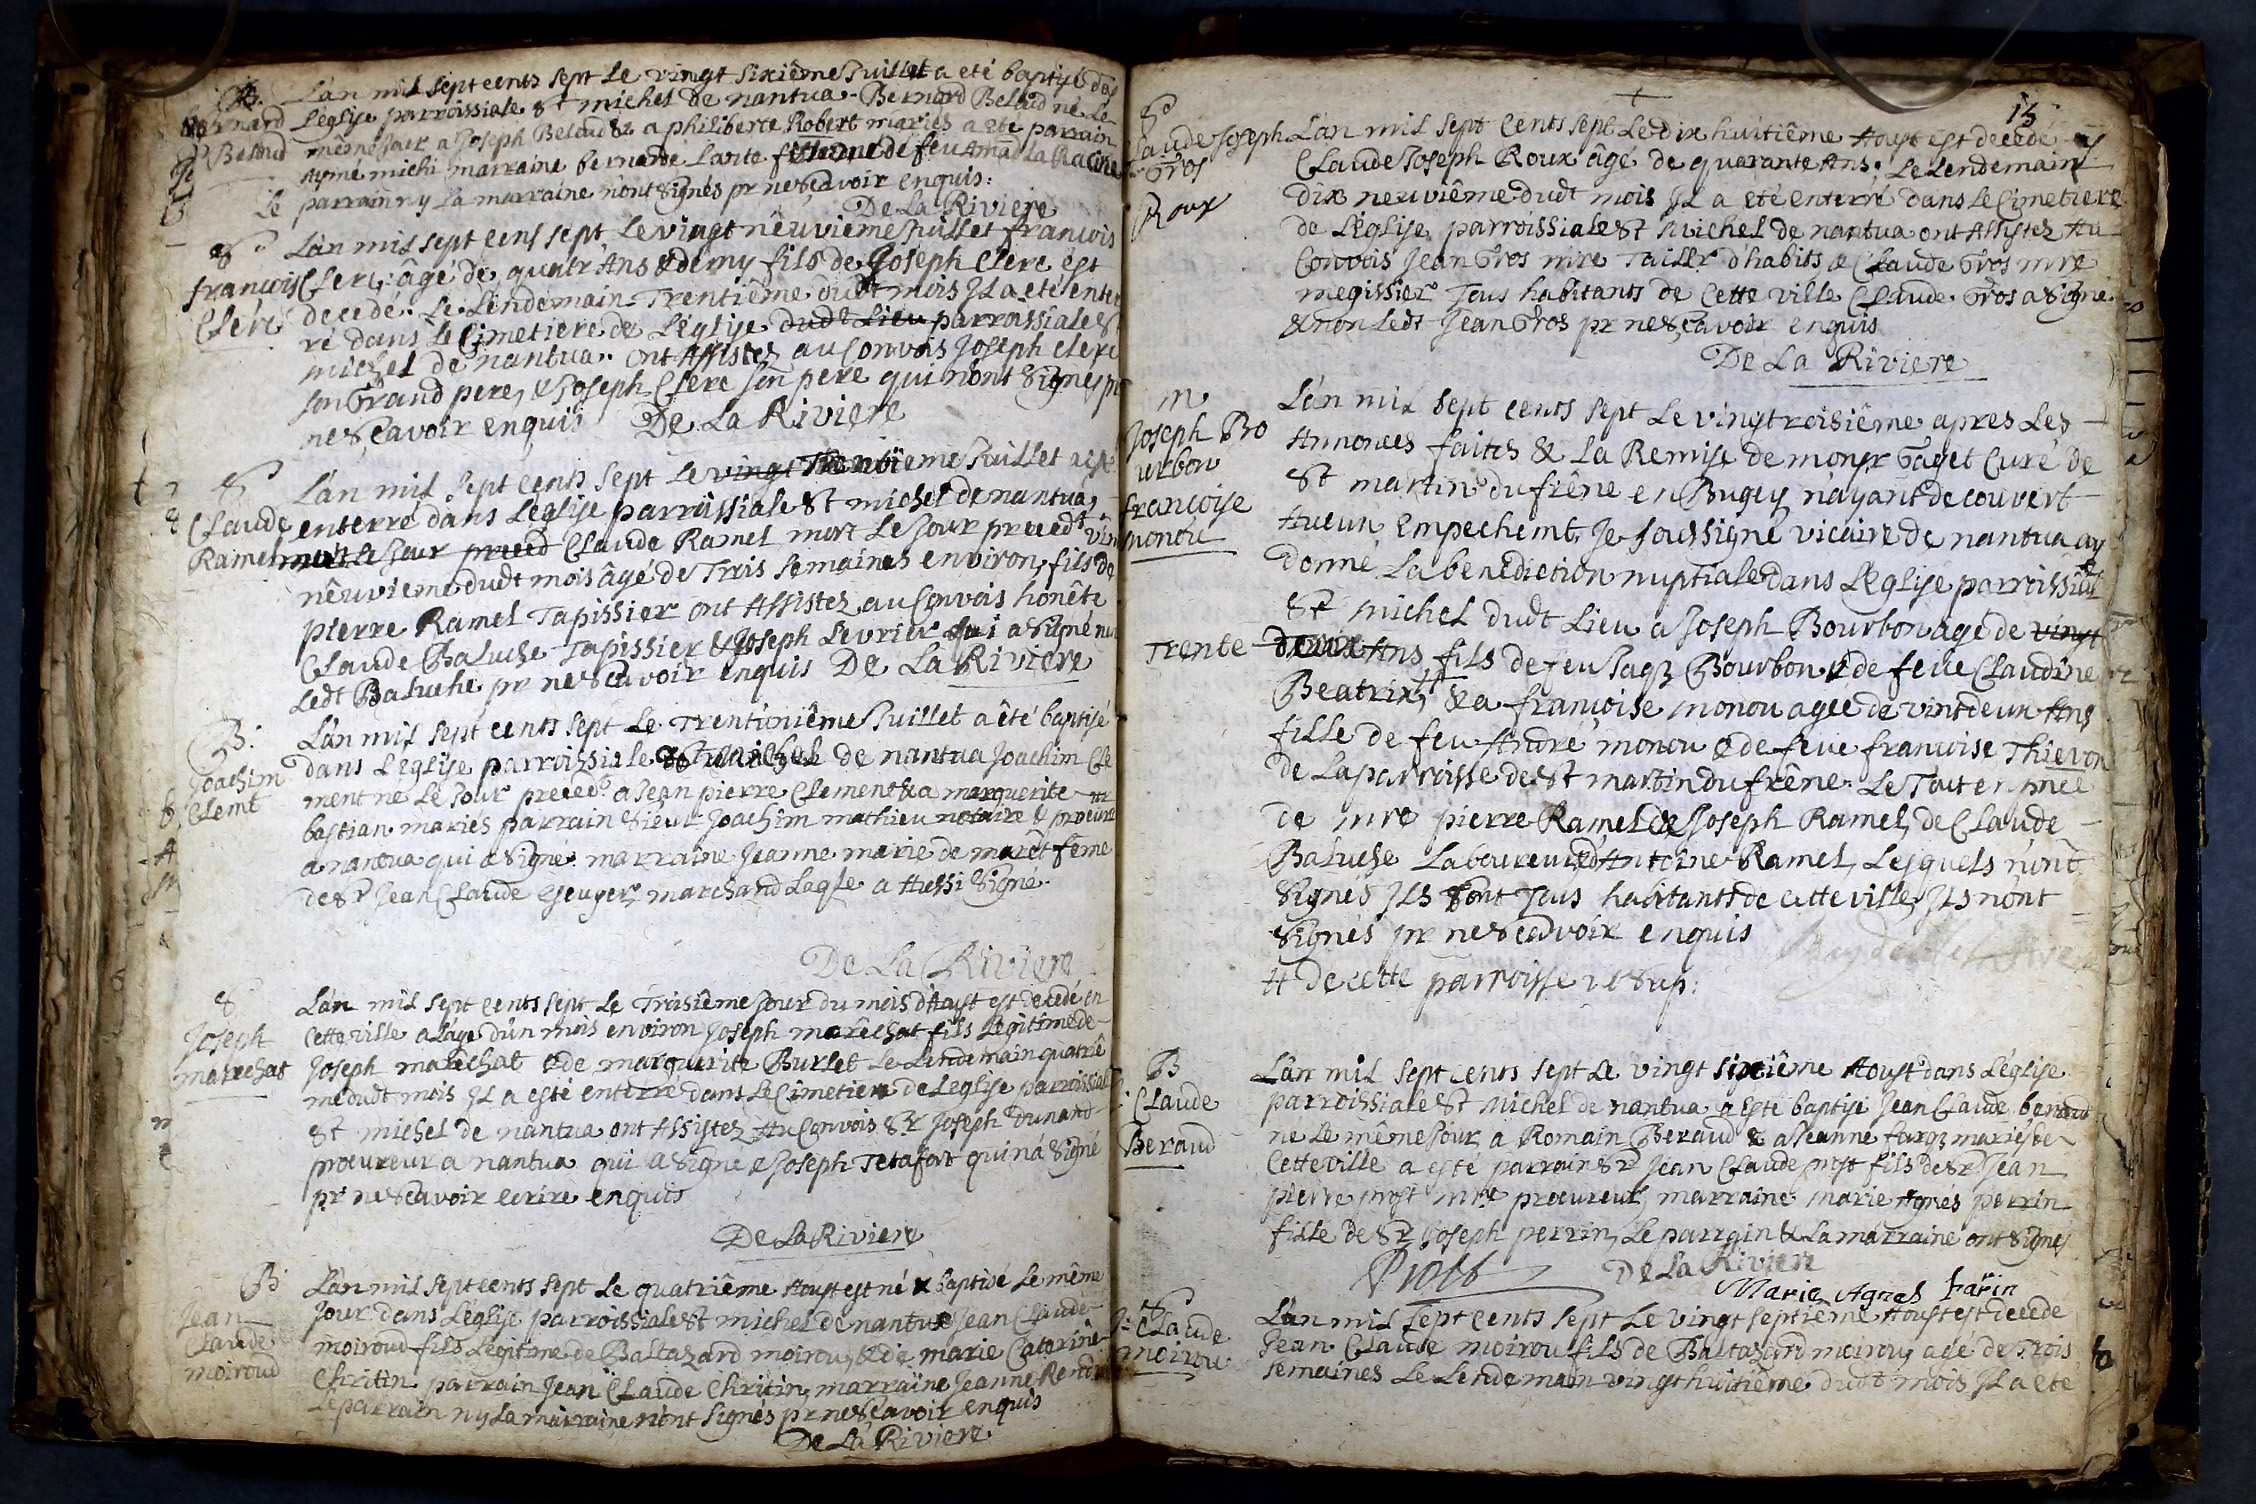 B. L'an mil sept cents sept le vingt sixième Juillet a eté baptisé das
Bernard L'eglise parroissiale St michel de nantua Bernard Beloud né le
Beloud même Jour a Joseph Beloud & a philiberte Robert mariés a eté parrain
Aymé michi marraine bernarde Larte femme de feu Amad La Racine
Le parrain ny La marraine n'ont signés pr ne sçavoir enquis:
De La Riviere
S L'an mil sept cens sept Le vingt neuvième Juillet francois
francois Clerc: âgé de quatr Ans & demy fils de Joseph Clerc est
Clerc decedé. Le Lendemain Trentième dudt mois Il a eté enter
ré dans Le Cimetiere de L'eglise dudt Lieu parroissiale St
michel de nantua. ont Assistez au Convois Joseph Clerc
son Grand pere, & Joseph Clerc son pere qui n'ont signés pr
ne sçavoir enquis De La Riviere
S L'an mil sept cents sept Le vingt Trentième Juillet a esté
Claude enterré dans L'eglise parroissiale St michel de nantua
Ramel mort Le Jour preced Claude Ramel mort Le Jour precedt vin
neuvieme dudt mois âgé de Trois semaines environ, fils de
pierre Ramel Tapissier ont Assistez au Convois honête
Claude Baluche Tapissier & Joseph Sevrier qui a signé non
Ledt Baluche pr ne sçavoir enquis De La Riviere
B. L'an mil sept cents sept Le Trentunième Juillet a êté baptisé
Joachim dans L'eglise parroissiale St michel de nantua Joachim Cle
Clemt ment né Le Jour preced. a Jean pierre Clement & a marguerite
bastian mariés parrain Sieur Joachim mathieu notaire & procureur
a nantua qui a signé marraine Jeanne marie de marêt feme
de Sr Jean Claude marchand Laqle a Aussi signé.
De La Riviere
S L'an mil sept cents sept Le Troisiême Jour du mois d'Aoust est decedé en
Joseph Cette ville a L'age d'un mois environ Joseph marêchat fils Legitime de
marechat Joseph marêchat & de marguerite Burlet Le Lendemain quatriê
me dudt mois Il a esté enterre dans Le Cimetiere de L'eglise parroissiale
St michel de nantua ont Assistez Au Convois Sr Joseph Dunand
procureur a nantua qui a signé & Joseph Tetafort qui n'a signé
pr ne sçavoir ecrire enquis
De La Riviere
B L'an mil sept cents sept Le quatriême Aoust est né & baptisé Le même
Jean Jour dans L'eglise parroissiale St michel de nantua Jean Claude
Claude moiroud fils Legitime de Baltazard moirou, & de marie Caterine
moiroud Chritin parrain Jean Claude Chritin, marraine Jeanne
Le parrain ny La marraine n'ont signés pr ne sçavoir enquis
De La Riviere
15
S
Claude Joseph L'an mil sept cents sept Le dix huitiême Aoust est decedé
Gros Claude Joseph Roux âgé de quarante Ans. Le Lendemain
Roux dix neuviême dudt mois Il a eté enterré dans Le Cimetiere
de L'eglise parroissiale St michel de nantua ont Assistez Au
Convois Jean Gros mre Tailler d'habits & Claude Gros mre
megissier Tous habitants de Cette ville Claude Gros a signe
& non Ledt Jean Gros pr ne sçavoir enquis
De La Riviere
m L'an mil sept cents sept Le vingtroisiême apres Les
Joseph Bo Annonces faites & La Remise de monsr Gaget Curé de
urbon St martin du frêne en Bugey n'ayant decouvert
francoise Aucun Empechemt, Je soussigné vicaire de nantua ay
monou donné La benediction nuptiale dans L'eglise parroissiale
St michel dudt Lieu a Joseph Bourbon agé de vingt
Trente deux Ans fils de feu Jaqz Bourbon & de feüe Claudine
Beatrix # & a françoise monou agée de vint deux Ans
fille de feu Andre monou & de feue francoise Thievon
de La parroisse de St martin du frêne. Le Tout en pnce
de mre pierre Ramel & Joseph Ramel, de Claude
Baluche Laboureur & d'Antoine Ramel, Lesquels n'ont
signés Ils sont Tous habitants de cette ville, Ils n'ont
signés pr ne sçavoir enquis
# de cette parroisse
B L'an mil sept cents sept Le vingt sixiême Aoust dans L'église
J: Claude parroissiale St michel de nantua a esté baptisé Jean Claude beraud
Beraud né Le même Jour a Romain Beraud & a Jeanne mariés de
Cette ville a esté parrain Sr Jean Claude prost fils de Sr Jean
pierre prost mre procureur, marraine marie Agnés perrin
fille de Sr Joseph perrin, Le parrain & La marraine ont signés
Prost De La Riviere
Marie Agnes parin
S L'an mil sept cents sept Le vingt septiême Aoust est decede
J: Claude Jean Claude moirou fils de Baltazard moirou, agé de Trois
moirou semaines Le Lendemain vingt huitième dudt mois Il a eté